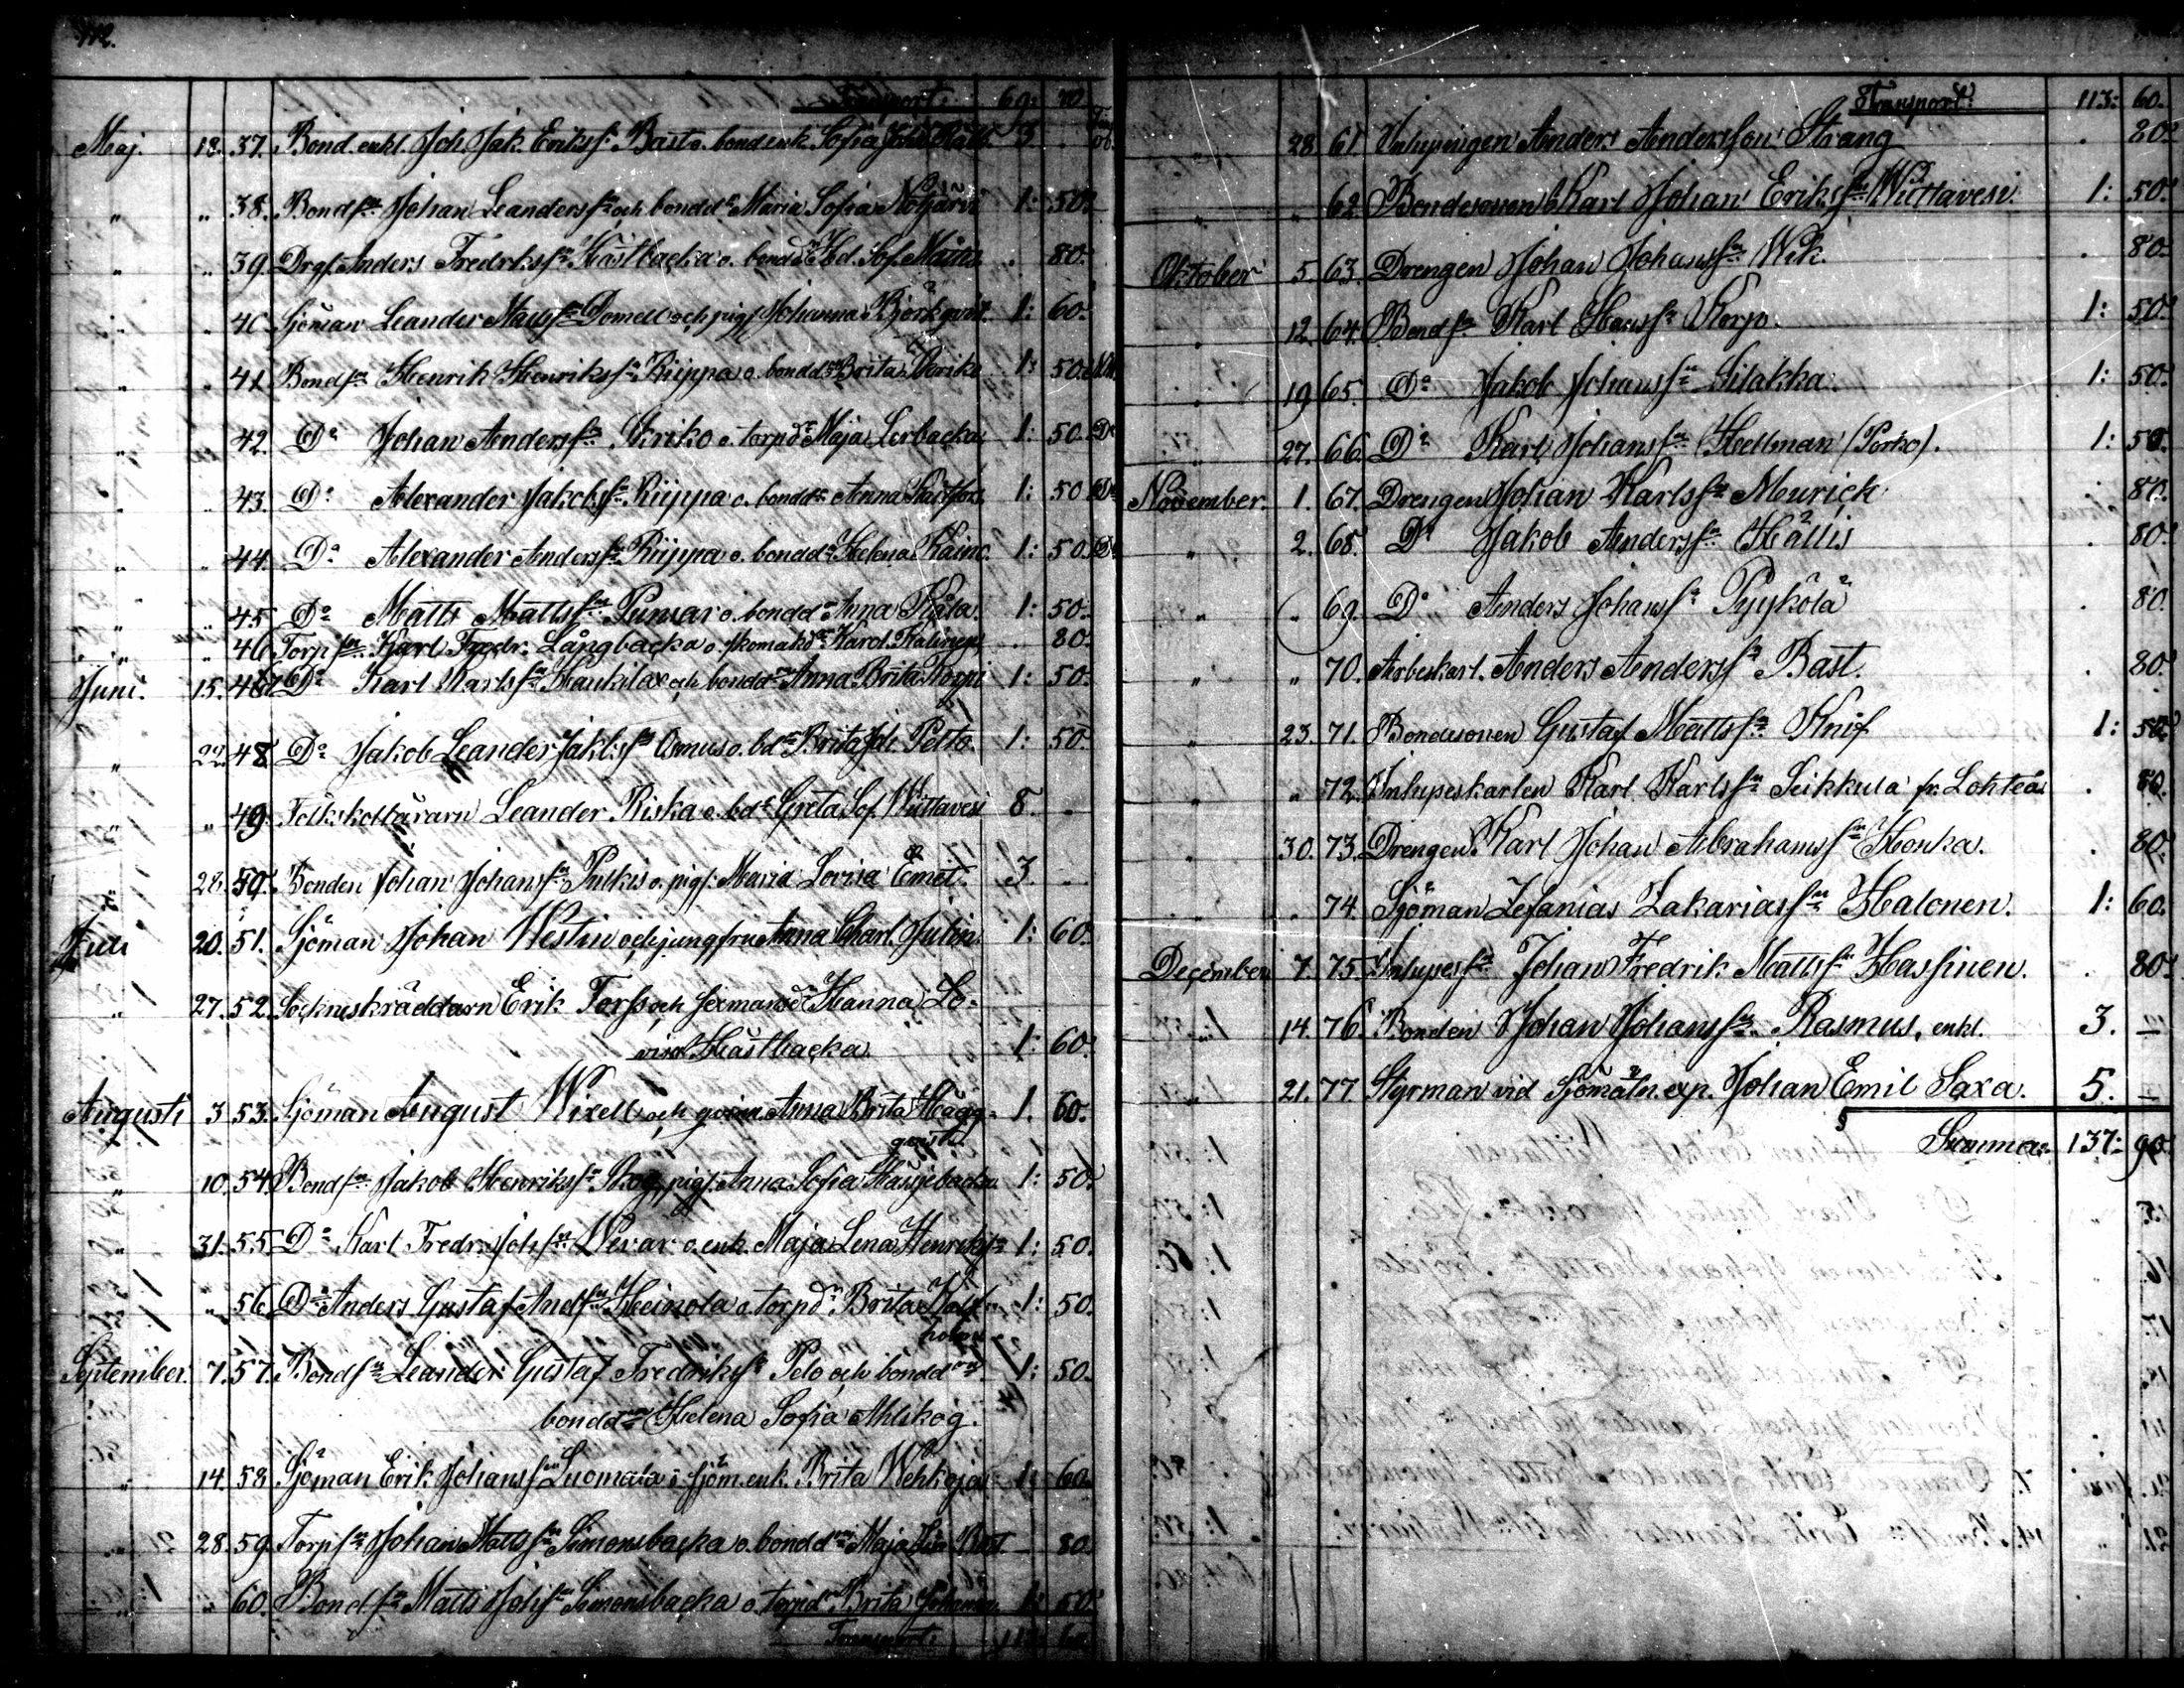 112.
Transport: 69: 20
Maj. 18. 37. Bond. enkl. Joh. Jak. Erikss. Bast o. bond.enk. Sofia 3
" " 38. Bondsn Johan Leanderssn och bonddr Maria Sofia Nötjärvi 1: 50.
" " 39. Drgs. Anders Fredrkssn Hästbacka o. bonddr Hed. Sof. Mattes . 80.
" " 40. Sjöman Leander Mattssn Domell och pigs Johanna Björkqvist 1: 60.
" " 41. Bondsn Henrik Henrikssn Riippa o. bonddn Brita 1: 50.
" " 42. Do Johan Anderssn Kriko o. torpdr Maja Lerbacka 1: 50. Do
" " 43. Do Alexander Jakobssn Riippa o. bonddr Anna 1: 50 Do
" " 44. Do Alexander Anderssn Riippa o. bonddr Helena Kaino. 1: 50. Do
" " 45. Do Matts Mattssn Pumar o. bonddr Anna Kåla. 1: 50.
" " 46. Torpsn Karl Fredr. Långbacka o. skomakdr Karol. . 80.
Juni. 15. 46b Do Karl Karlssn Haukilax och bonddr Anna Brita Korpi 1: 50.
" 22. 48 Do Jakob Leander Jakbsn Osmus o. bdr Brita Joh. Pelto. 1: 50.
" " 49. Folkskollärarn Leander Riska o. bdr Greta Sof. Wiittavesi 8. .
" 28. 50. Bonden Johan Johanssn Pulkis o. pigs. Maria Lovisa Emet. 3. ..
Juli 20. 51. Sjöman Johan Westin och jungfru Anna Charl. Julin. 1: 60.
" 27. 52. Sockneskräddarn Erik Forss och sexmansdr Hanna Lo-
visa Hästbacka. 1: 60.
Augusti 3 53. Sjöman August Wixell och Anna Brita Hägg- 1. 60.
qvist.
" 10. 54. Bondsn Jakob Henrikssn Skog, pigs. Anna Sofia Hässjebacka 1: 50.
" 31. 55 Do Karl Fredr. Johssn Wevar o. enk. Maja Lena Henriksdr 1: 50.
" " 56 Do Anders Gustaf Andssn Heinola o. torpdr Brita Kalf- 1: 50.
holm
September. 7. 57. Bondsn Leander Gustaf Fredrikssn Pelo och bonddrn 1: 50.
bonddrn Helena Sofia Ahlskog.
" 14. 58 Sjöman Erik Johanssn Luomala o. sjöm.enk. Brita Wehkoja 1: 60.
" 28. 59. Torpsn Johan Mattssn Simonsbacka o. bonddrn Maja Lisa Bast. – 80.
" " 60. Bondsn Matts Johssn Simonsbacka o. torpdr Brita Johanna 1: 50.
Transport: 113: 60.
Transport: 113: 60.
" 28. 61. Inhysingen Anders Andersson Strang . 80.
" " 62. Bondesonen Karl Johan Erikssn Wiittavesi. 1: 50.
Oktober 5. 63. Drengen Johan Johanssn Wik. . 80.
" 12. 64. Bondsn Karl Hanssn Korp. 1: 50.
" 19. 65. Do Jakob Johanssn Silakka. 1: 50.
" 27. 66. Do Karl Johanssn Hellman (Porko). 1: 50.
November. 1. 67. Drengen Johan Karlssn Meurick . 80.
" 2. 68. Do Jakob Anderssn Hällis . 80.
" " 69. Do Anders Johanssn Pyykölä . 80.
" " 70. Arbeskarl. Anders Anderssn Bast. . 80.
" 23. 71. Bondesonen Gustaf Mattssn Knif 1: 50.
" " 72. Inhyseskarlen Karl Karlssn Seikkula fr. Lohteå . 80.
" 30. 73. Drengen Karl Johan Abrahamssn Honka. . 80.
" " 74. Sjöman Zefanias Zakariassn Halonen. 1: 60.
December 7. 75. Inhysessn Johan Fredrik Mattssn Hassinen. . 80.
" 14. 76. Bonden Johan Johanssn Rasmus, enkl. 3. –
" 21. 77. Styrman vid Sjömätn. exp. Johan Emil Saxa. 5. –
Summa: 137: 90.